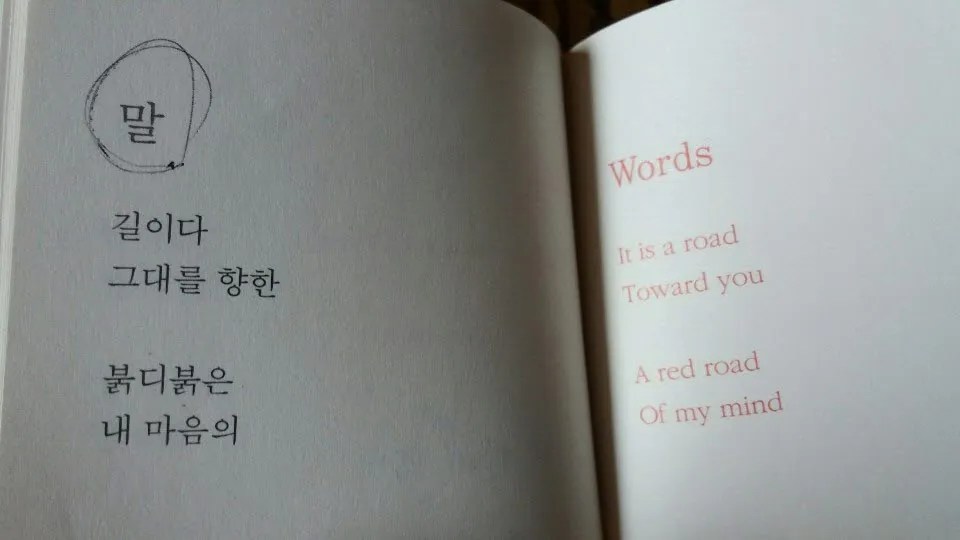 말
길이다
그대를 향한
붉디붉은
내 마음의
Words
It is a road
Toward you
A red road
Of my mind